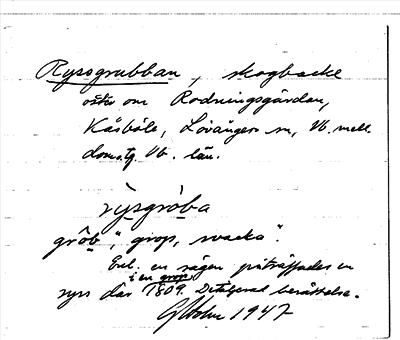 Rysogrubban, skogbacke
öster om Rodningsgårdan,
Kåsböle, Lövångers sn, Vb. mell.
doms.tg. Vb. län.
rysgròba
grôb, "grop, svacka".
Enl. en sägen påträffades en
i en grop
ryss där 1809. Detaljerad berättelse.
Holm 1947